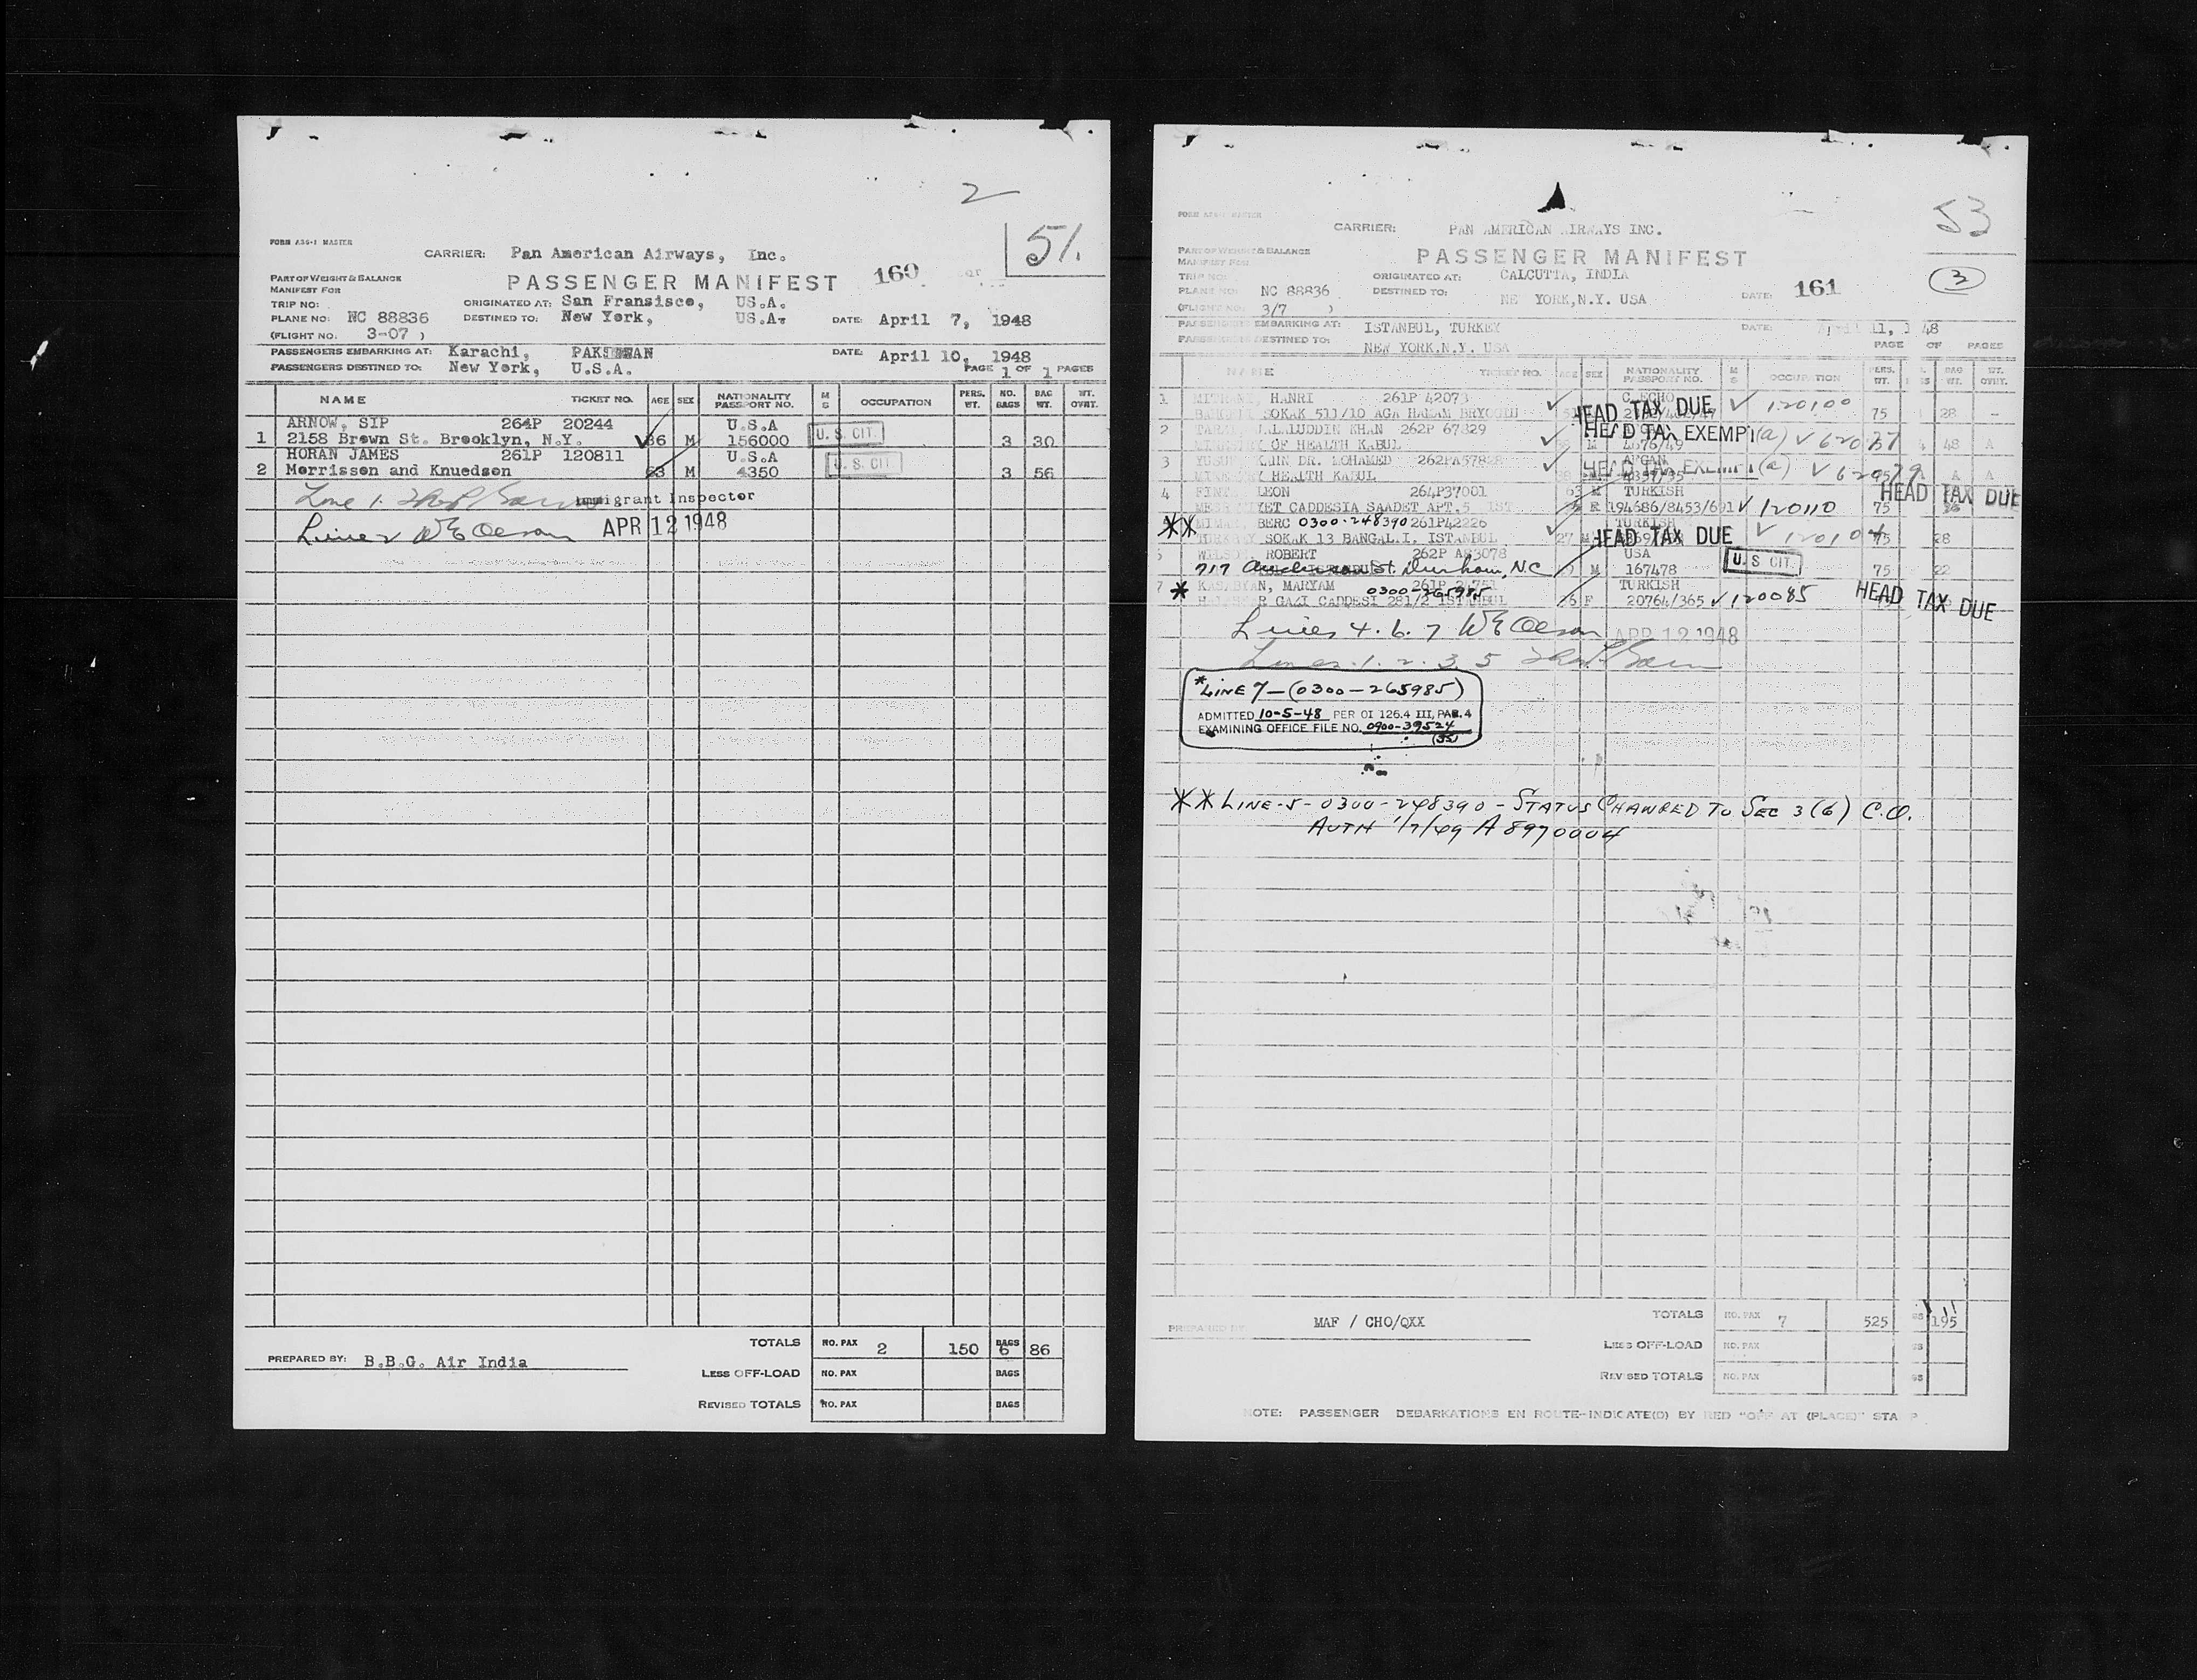 2
51.
FORM A36-1 MASTER
CARRIER: Pan American Airways, Inc.
PART OF WEIGHT & BALANCE
MANIFEST FOR
PASSENGER MANIFEST 160
TRIP NO: ORIGINATED AT: San Fransisco, U.S.A.
PLANE NO: NC 88836 DESTINED TO: New York, U.S.A. DATE: April 7, 1948
(FLIGHT NO. 3-07 )
PASSENGERS EMBARKING AT: Karachi, DATE: April 10, 1948
PASSENGERS DESTINED TO: New York, U.S.A. PAGE 1 OF 1 PAGES
NAME TICKET NO. AGE SEX NATIONALITY PASSPORT NO. M S OCCUPATION PERS. WT. NO. BAGS BAG WT. WT. OVHT.
ARNOW, SIP 264P 20244 U.S.A
1 2158 Brown St. Brooklyn, N.Y. 36 M 156000 U.S. CIT. 3 30
HORAN JAMES 261P 120811 U.S.A
2 Morrisson and Knuedson 63 M 4350 U.S. CIT. 3 56
Line 1.
Immigrant Inspector
Line 2 WE Oleson APR 12 1948
TOTALS NO. PAX 2 150 BAGS 6 86
PREPARED BY: B.B.G. Air India
LESS OFF-LOAD NO. PAX BAGS
REVISED TOTALS NO. PAX BAGS
53
CARRIER: PAN AMERICAN AIRWAYS INC.
PART OF WEIGHT & BALANCE
MANIFEST FOR
PASSENGER MANIFEST
3
TRIP NO: ORIGINATED AT: CALCUTTA, INDIA
PLANE NO: NC 88836 DESTINED TO: NE YORK,N.Y. USA DATE: 161
(FLIGHT NO: 3/7 )
PASSENGERS EMBARKING AT: ISTANBUL, TURKEY DATE: 11, 1948
PASSENGERS DESTINED TO: NEW YORK.N.Y. USA PAGE OF PAGES
NAME TICKET NO. AGE SEX NATIONALITY PASSPORT NO. M S OCCUPATION PERS. WT. BAG WT. WT. OVHT.
1 HANRI 261P 42073 C.ECHO
SOKAK 511/10 AGA HAMAM HEAD TAX DUE 120100 75 28 -
2 JALALUDDIN KHAN 262P 67829
OF HEALTH KABUL M 4676/49 HEAD TAX EXEMPT(a) 4 48 A
3 DR. MOHAMED AFGAN
HEALTH KABUL HEAD TAX EXEMPT(a) A A
4 LEON 264P37001 63 M TURKISH HEAD TAX DUE
CADDESIA SAADET APT.5 IST 194686/8453/691 120110 75
** BERC 0300-248390 261P42226 TURKISH
SOKAK 13 BANGAL.I. ISTANBUL 27 M HEAD TAX DUE 120104 75 28
WILSON, ROBERT 262P A83078 USA
717 Durham, NC M 167478 U.S CIT. 75 22
7 * MARYAM 0300-265985 TURKISH
GAZI CADDESI 281/2 ISTANBUL 26 F 20764/365 120085 HEAD TAX DUE
Lines 4. 6. 7 WE Oleson APR 12 1948
Lines. 1. 2. 3. 5
*LINE 7-(0300-265985)
ADMITTED 10-5-48 PER OI 126.4 III, PAR. 4
EXAMINING OFFICE FILE NO. 0900-39524
(35)
** LINE-5-0300-248390-STATUS CHANGED TO SEC 3(6) C.O.
AUTH 1/7/49 A 8970004
TOTALS NO. PAX 7 525 195
PREPARED BY MAF / CHO/QXX
LESS OFF-LOAD NO. PAX
REVISED TOTALS NO. PAX
NOTE: PASSENGER DEBARKATIONS EN ROUTE-INDICATE(D) BY RED "OFF AT (PLACE)" STA P